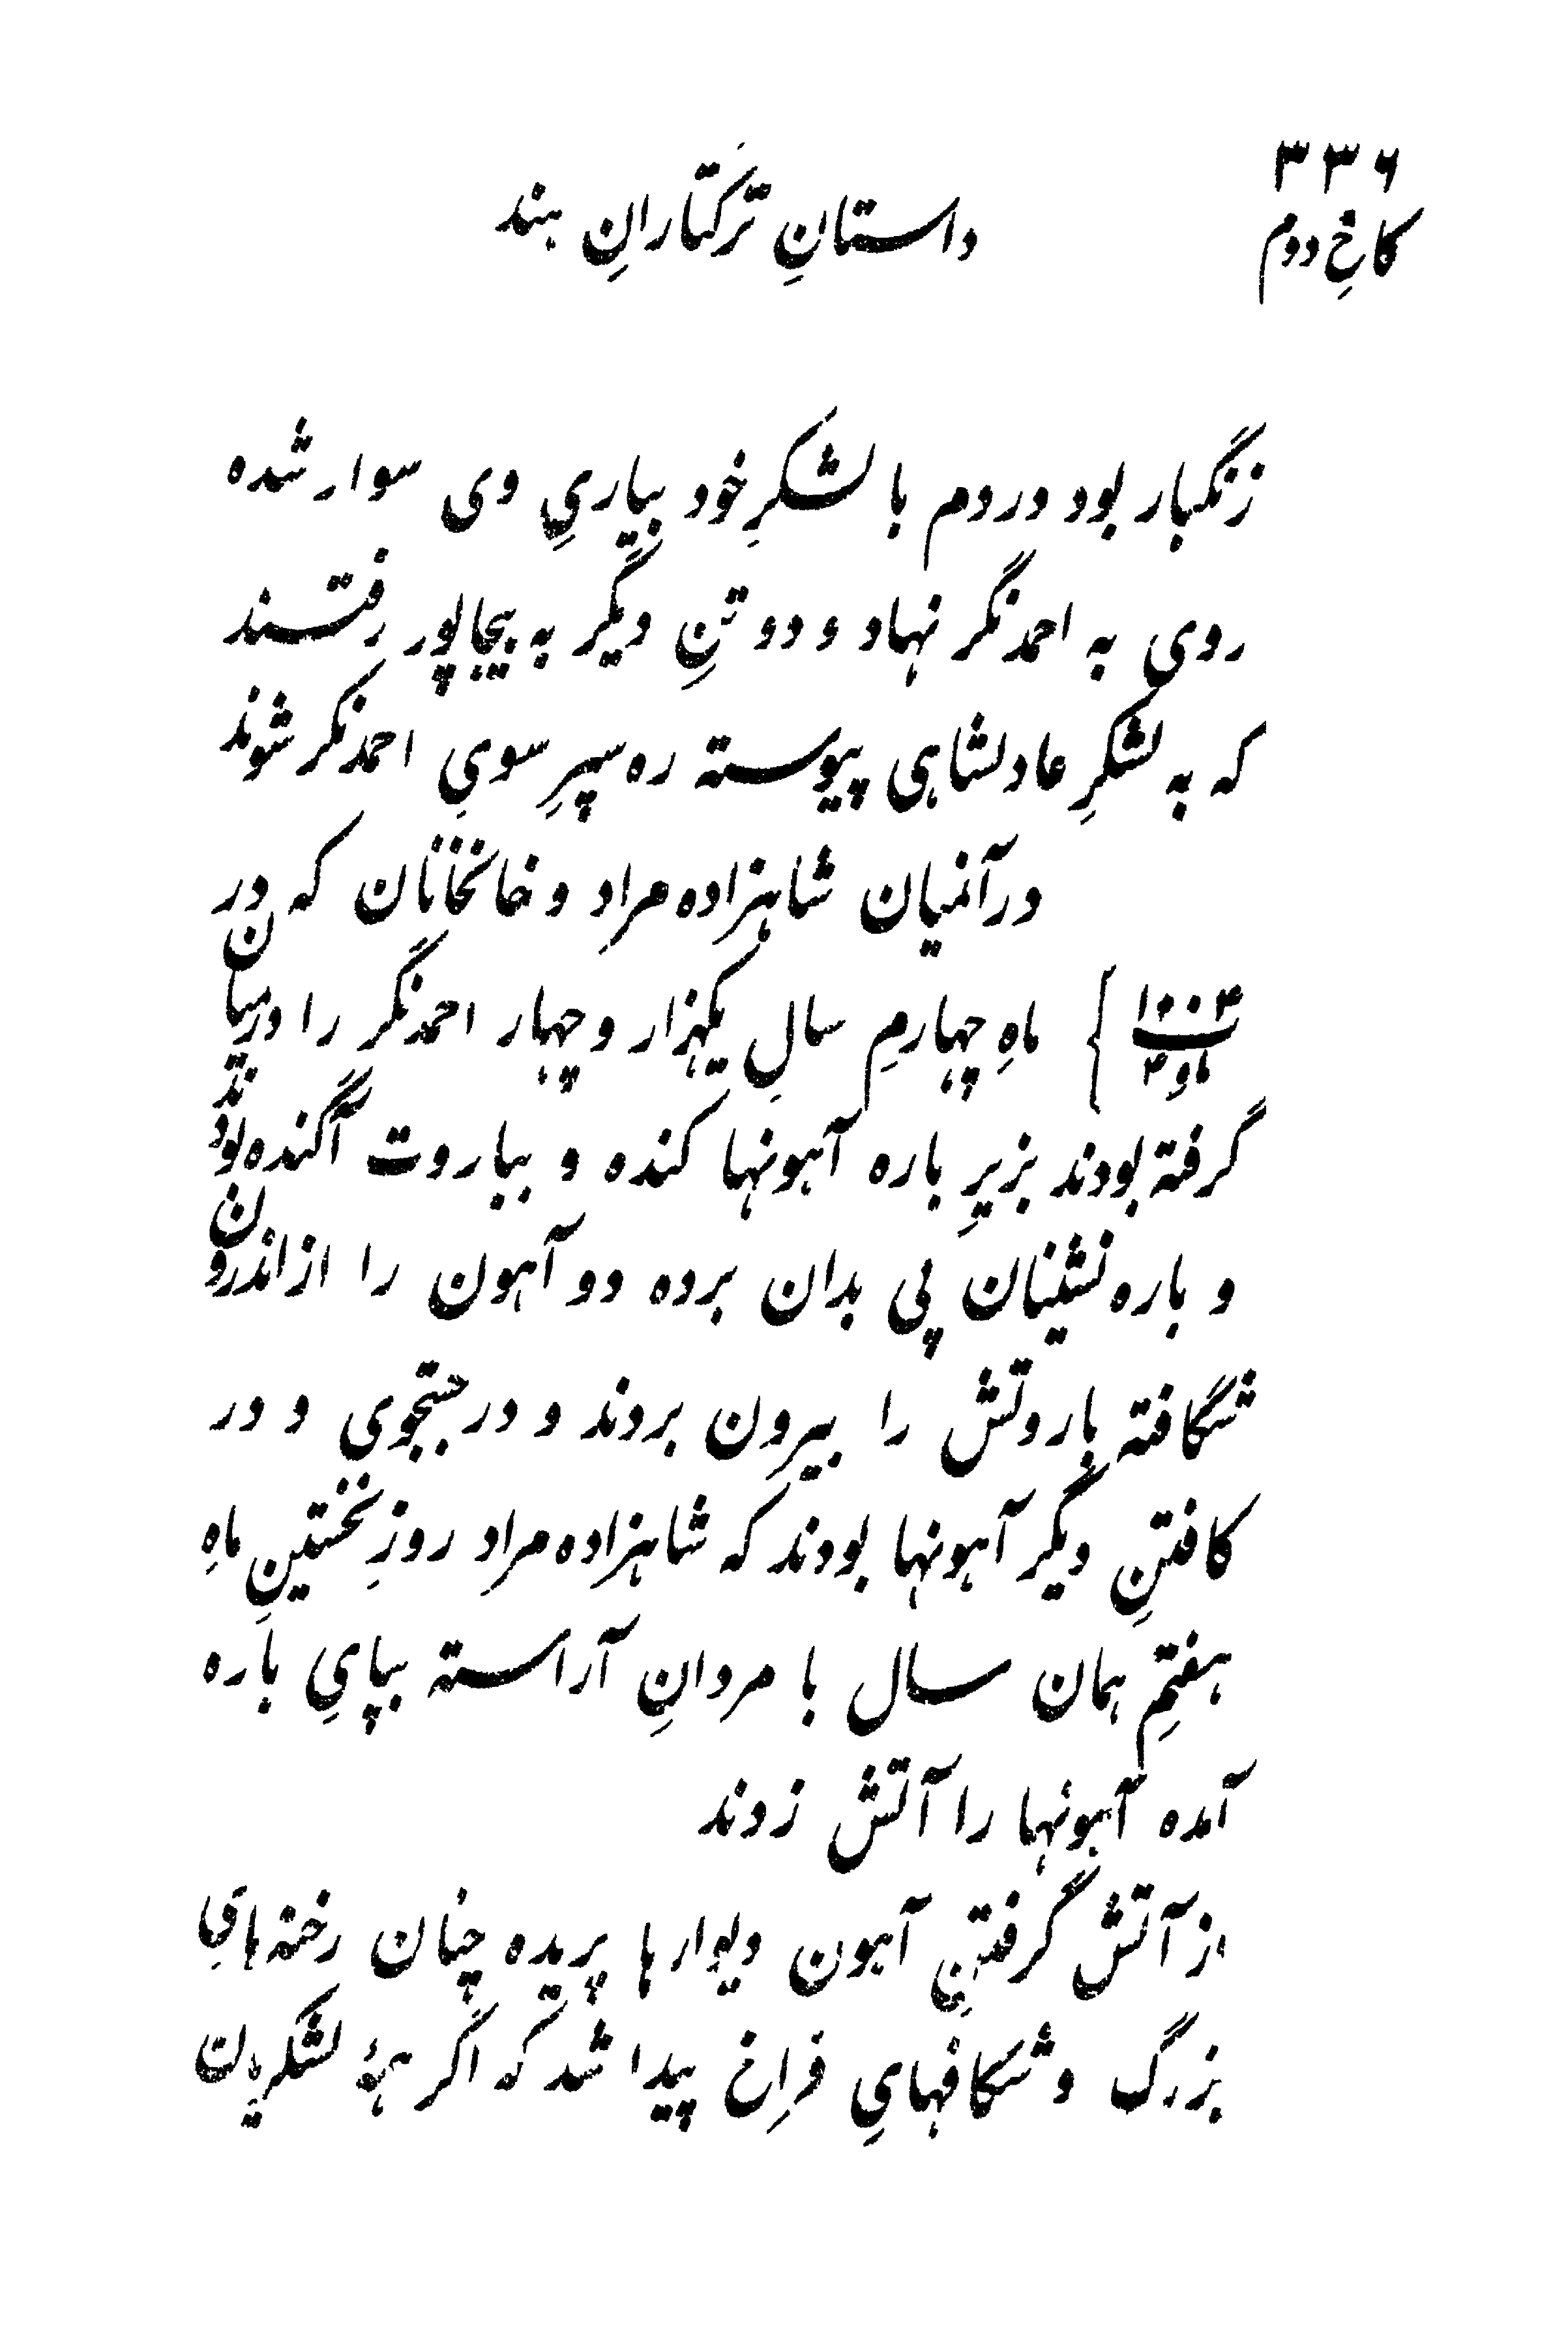 ۳۳۶
کاخِ دوم
داستانِ ترکتازانِ هند
زنگبار بود دردم با لشکرِ خود بیاریِ وی سوار شده
روی به احمدنگر نهاد و دو تنِ دیگر به بیجاپور رفتند
که به لشکرِ عادلشاهی پیوسته ره سپرِ سویِ احمدنگر شوند
درآنمیان شاهزاده مراد و خانخانان که در
۱۰۰۴ ماه ۴ } ماهِ چهارمِ سالِ یکهزار و چهار احمدنگر را درمیان
گرفته بودند بزیرِ باره آهونها کنده و بباروت آگنده بودند
و باره نشینان پی بدان برده دو آهون را از اندرون
شگافته باروتش را بیرون بردند و در جستجوی و در
کافتنِ دیگر آهونها بودند که شاهزاده مراد روزِ نخستینِ ماهِ
هفتمِ همان سال با مردانِ آراسته بپایِ باره
آمده آهونها را آتش زدند
از آتش گرفتنِ آهون دیوارها پریده چنان رخنه‌هایِ
بزرگ و شگافهایِ فراخ پیدا شد که اگر همهٔ لشکریان